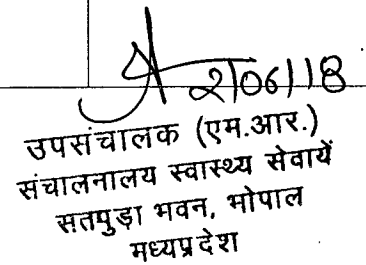 2/06/18
उपसंचालक (एम.आर.)
संचालनालय स्वास्थ्य सेवायें
सतपुड़ा भवन, भोपाल
मध्यप्रदेश